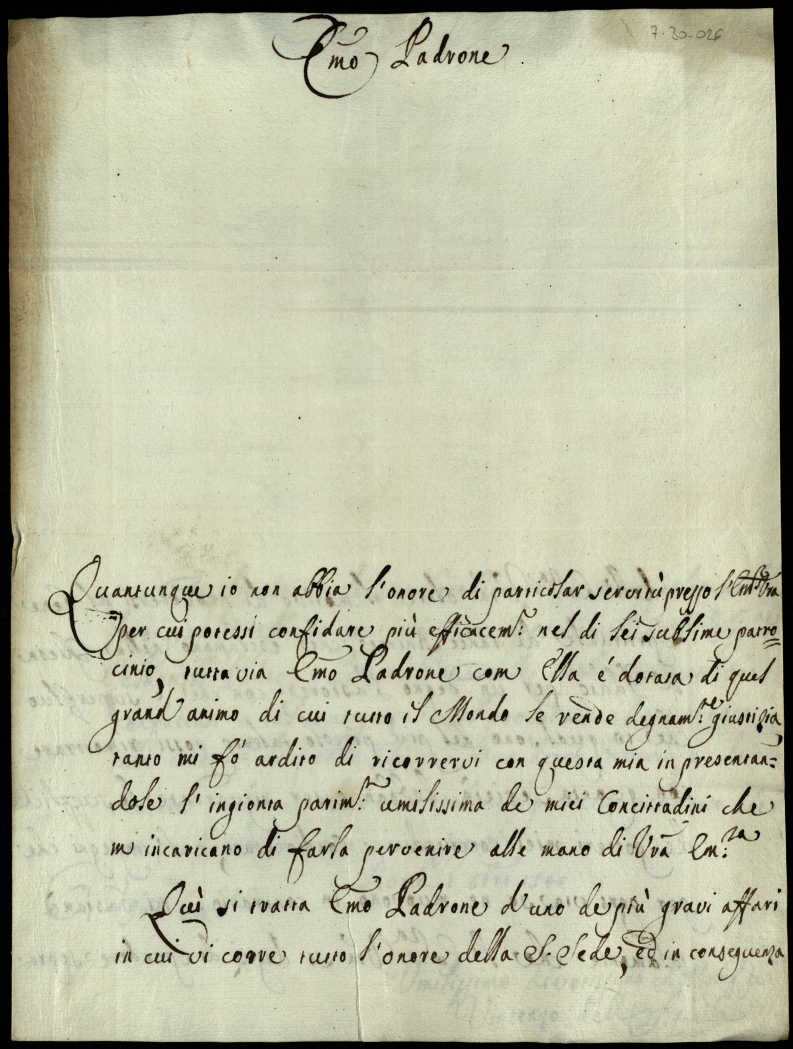 7-30-026
Emo Padrone.
Quantunque io non abbia l'onore di particolar servitù presso l'Emza Vra
per cui potessi confidare più efficacemte. nel di lei sublime patro=
cinio, tutta via Emo Padrone com Ella é dotata di quel
grand'animo di cui tutto il Mondo le rende degnamte. giustizia,
tanto mi fó ardito di ricorrervi con questa mia in presentan=
dole l'ingionta parimte. umilissima de miei Concittadini che
m incaricano di farla pervenire alle mano di Vra Em.za
Quì si tratta Emo Padrone d'uno de più gravi affari
in cui vi corre tutto l'onore della S. Sede, ed in conseguenza